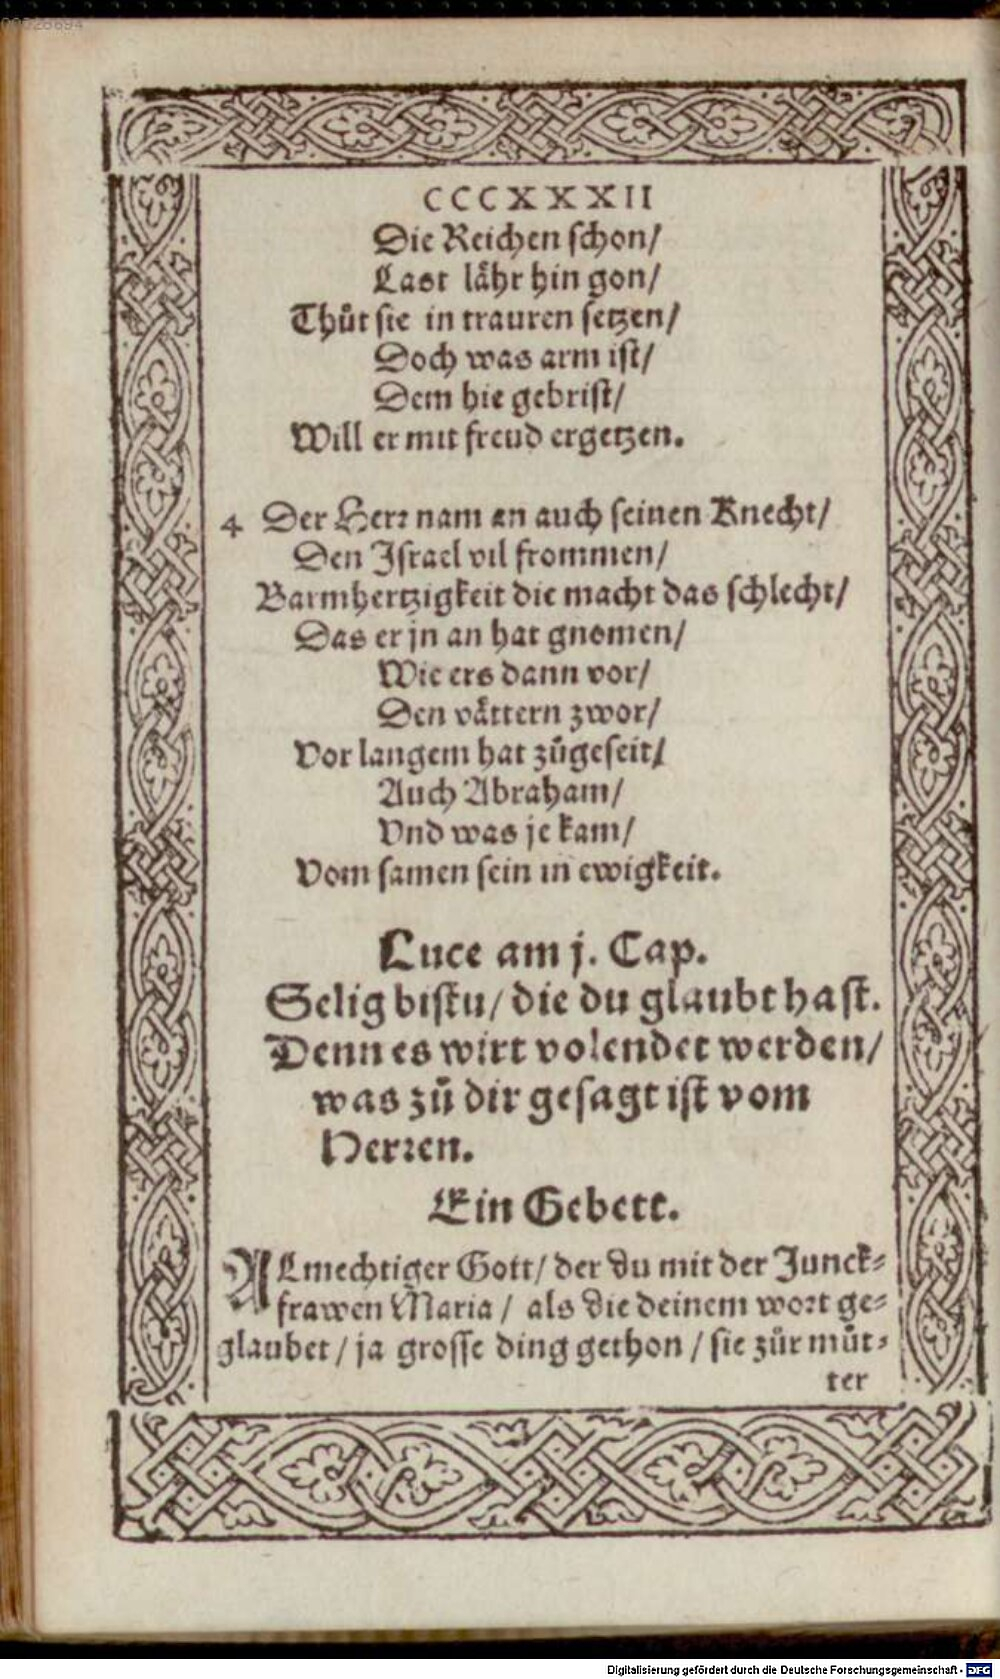 00028694
CCCXXXII
Die Reichen schon/
Last låhr hin gon/
Thůt sie in trauren setzen/
Doch was arm ist/
Dem hie gebrist/
Will er mit freud ergetzen.
4 Der Herr nam an auch seinen Knecht/
Den Israel vil frommen/
Barmhertzigkeit die macht das schlecht/
Das er jn an hat gnomen/
Wie ers dann vor/
Den våttern zwor/
Vor langem hat zůgeseit/
Auch Abraham/
Vnd was je kam/
Vom samen sein in ewigkeit.
Luce am j. Cap.
Selig bistu/ die du glaubt hast.
Denn es wirt volendet werden/
was zů dir gesagt ist vom
Herren.
Ein Gebett.
ALmechtiger Gott/ der du mit der Junck=
frawen Maria/ als die deinem wort ge=
glaubet/ ja grosse ding gethon/ sie zůr můt=
ter
Digitalisierung gefördert durch die Deutsche Forschungsgemeinschaft - DFG